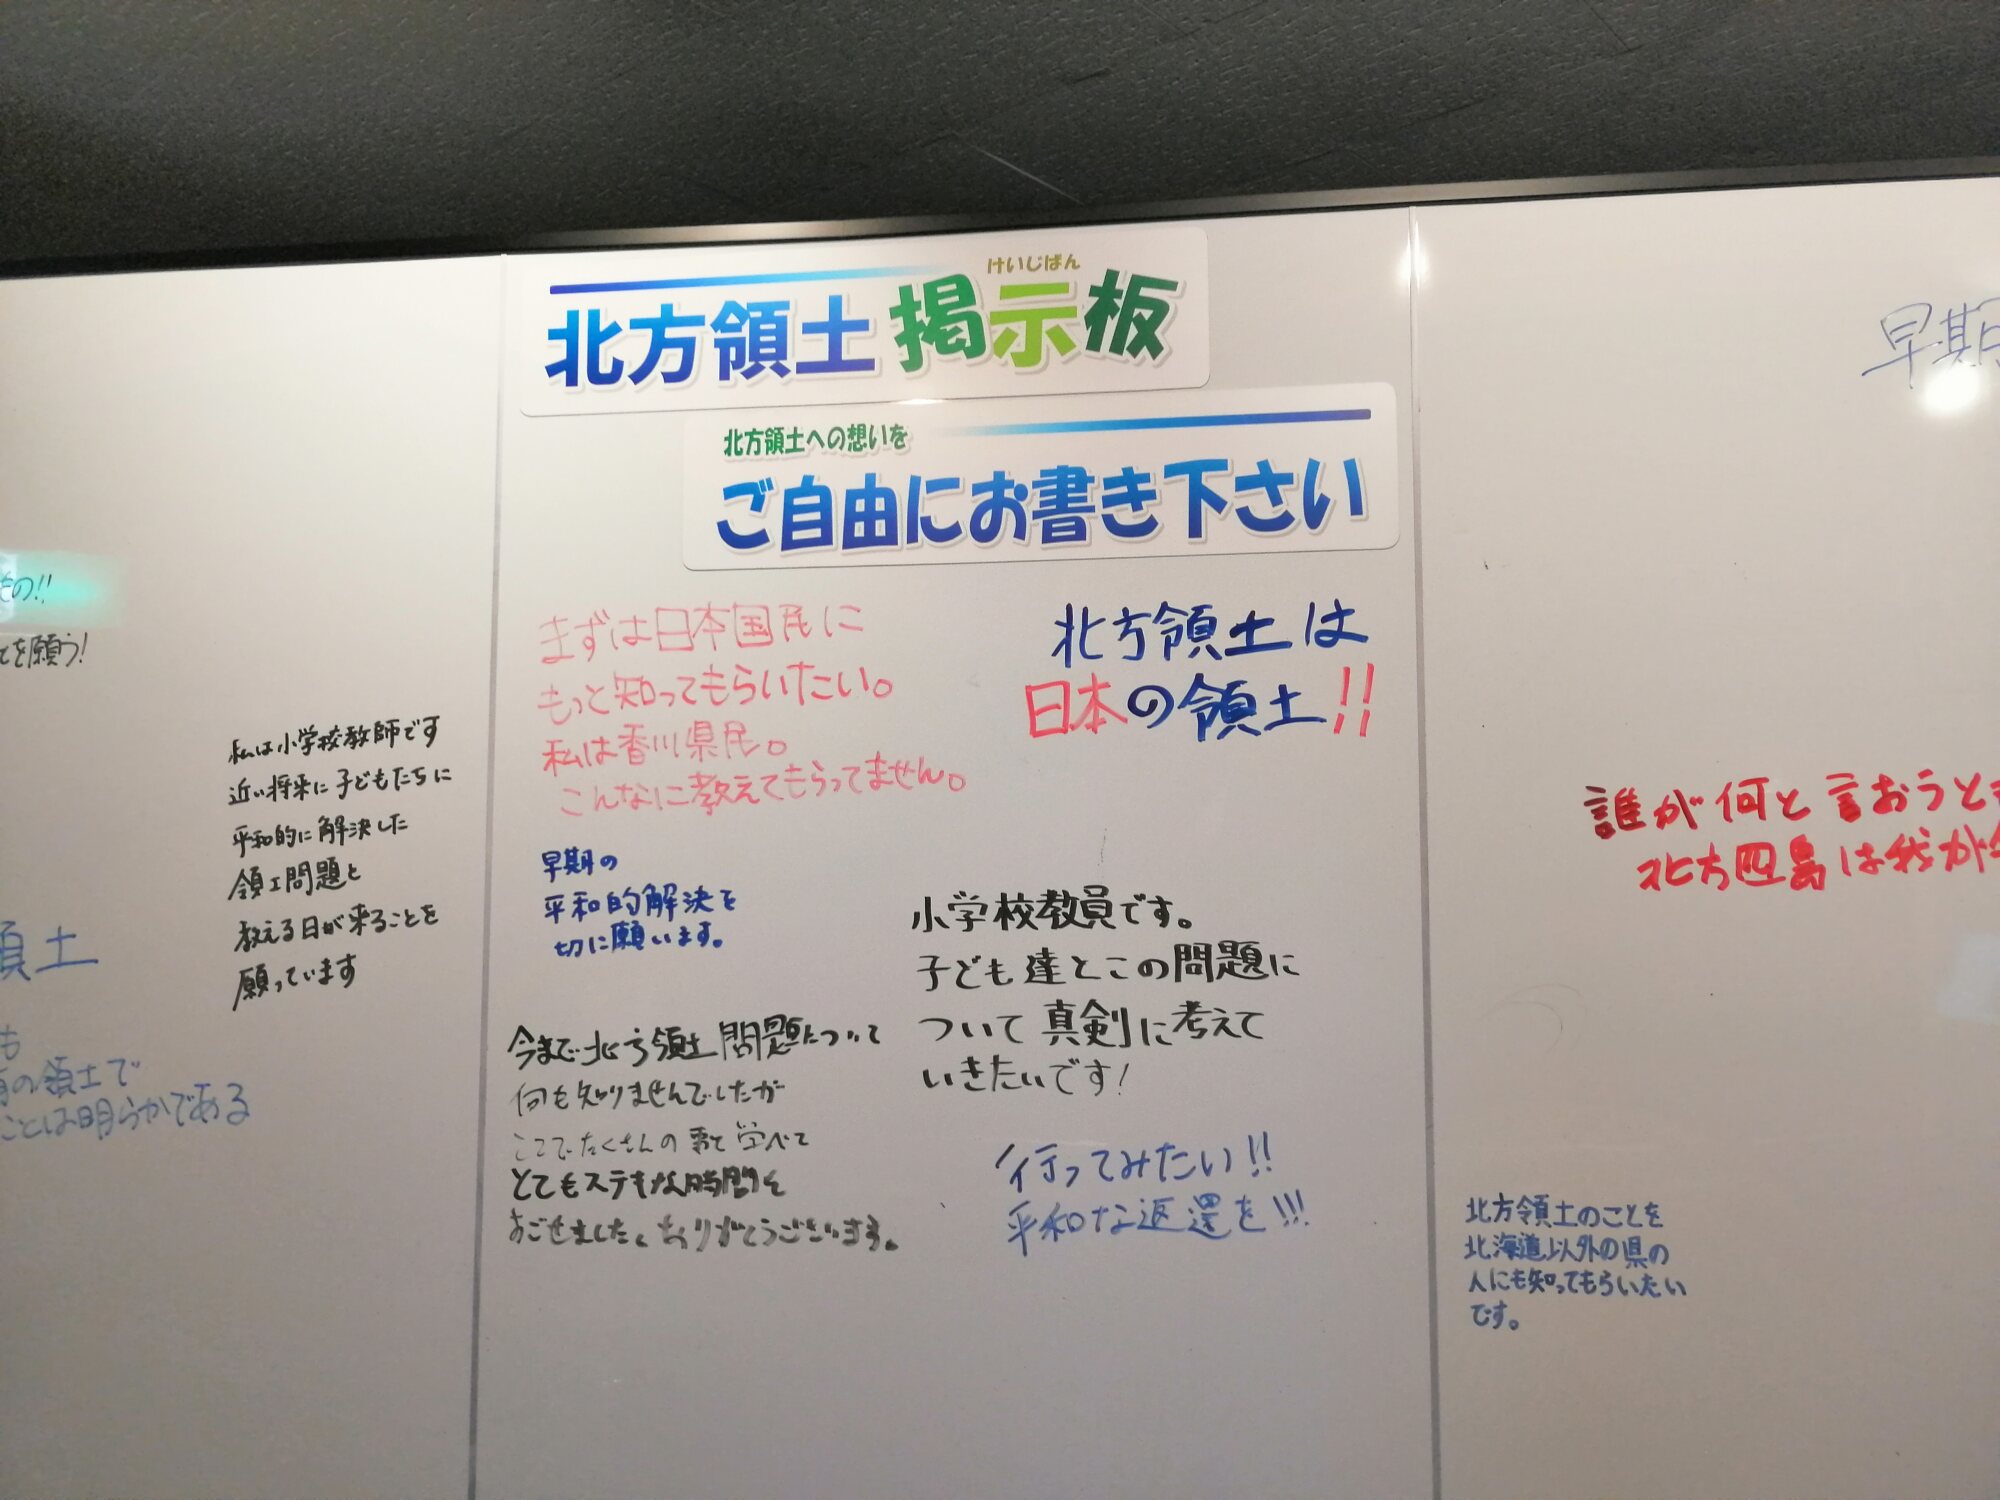 けいじばん
北方領土 掲示板
北方領土への想いを
ご自由にお書き下さい
もの!!
てを願う!
私は小学校教師です
近い将来に子どもたちに
平和的に解決した
領工問題と
教える日が来ることを
願っています
領土
も
の領土で
ことは明らかである
まずは日本国民に
もっと知ってもらいたい。
私は香川県民。
こんなに教えてもらってません。
早期の
平和的解決を
切に願います。
今まで北方領土問題について
何も知りませんでしたが
ここでたくさんの事を学べて
とてもステキな時間を
すごせました。ありがとうございます。
北方領土は
日本の領土!!
小学校教員です。
子ども達とこの問題に
ついて真剣に考えて
いきたいです!
行ってみたい!!
平和な返還を!!!
早期
誰が何と言おうとも
北方四島は我が
北方領土のことを
北海道以外の県の
人にも知ってもらいたい
です。